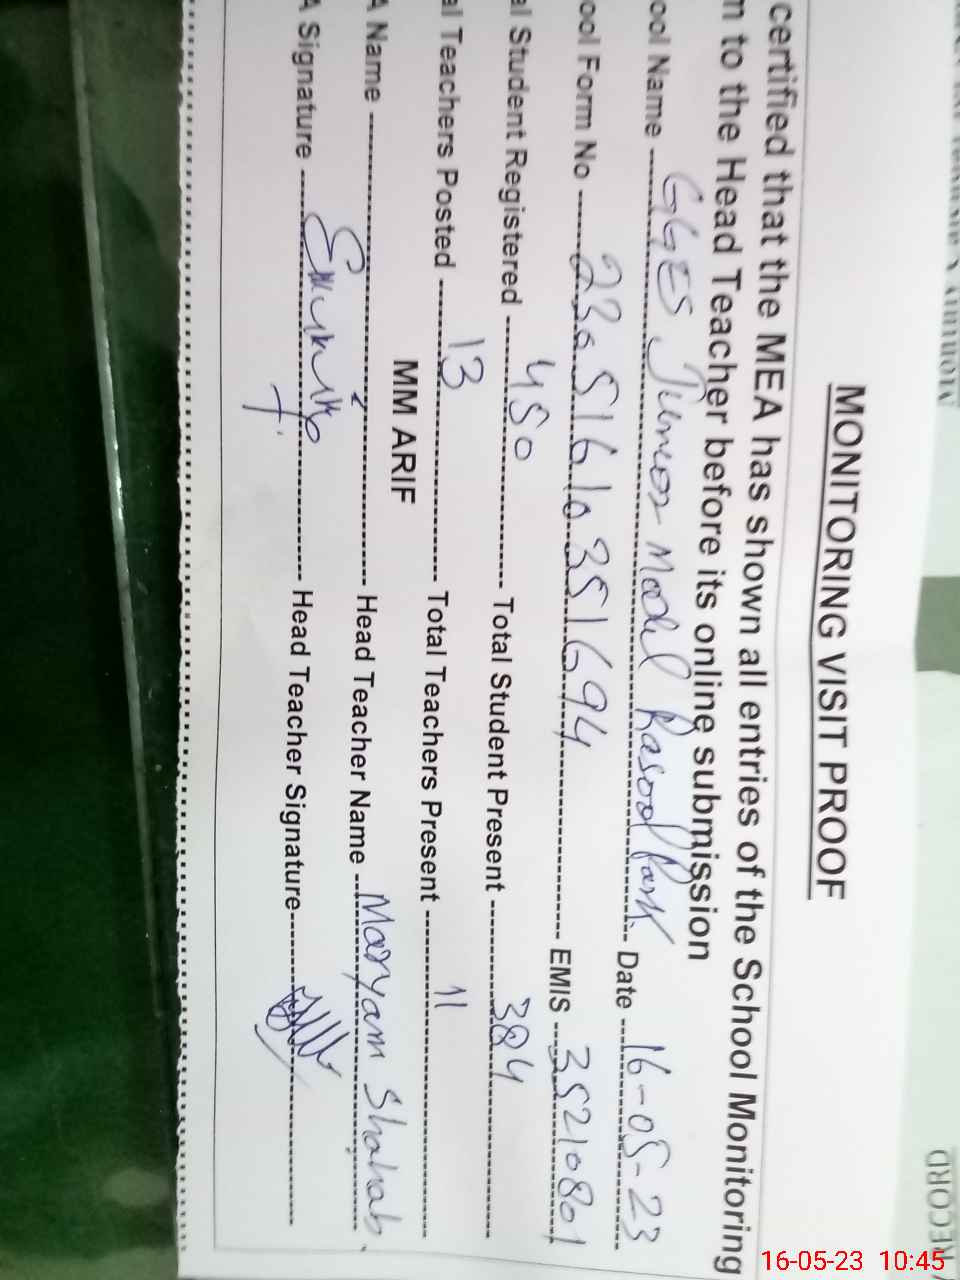 MONITORING VISIT PROOF
certified that the MEA has shown all entries of the School Monitoring
m to the Head Teacher before its online submission
ool Name GGES Junior Model Rasool Park Date 16-05-23
ool Form No 23051610351694 EMIS 35210801
al Student Registered 450 Total Student Present 384
al Teachers Posted 13 Total Teachers Present 11
MM ARIF
A Name Head Teacher Name Maryam Shahab
A Signature Head Teacher Signature
RECORD
16-05-23 10:45